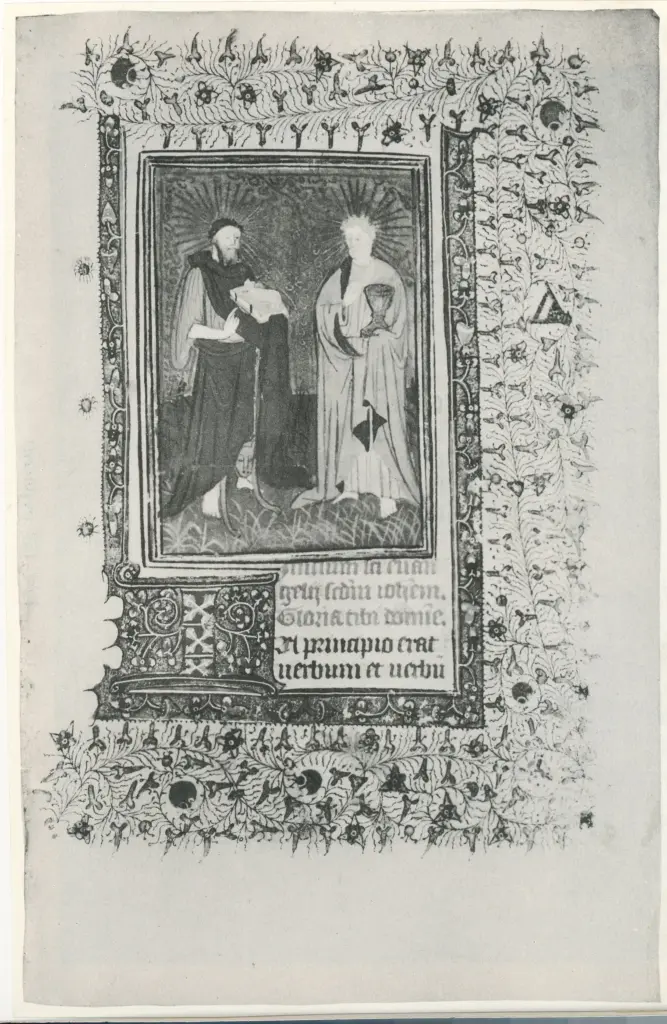 Initium sci euan
gelij scdm iohem.
Gloria tibi domine.
IN principio erat
uerbum et uerbu